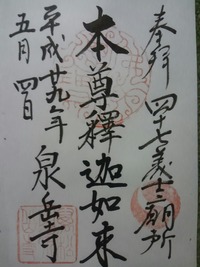 奉拝 四十七義士祈願所
本尊釋迦如来
泉岳寺
平成廿九年
五月四日